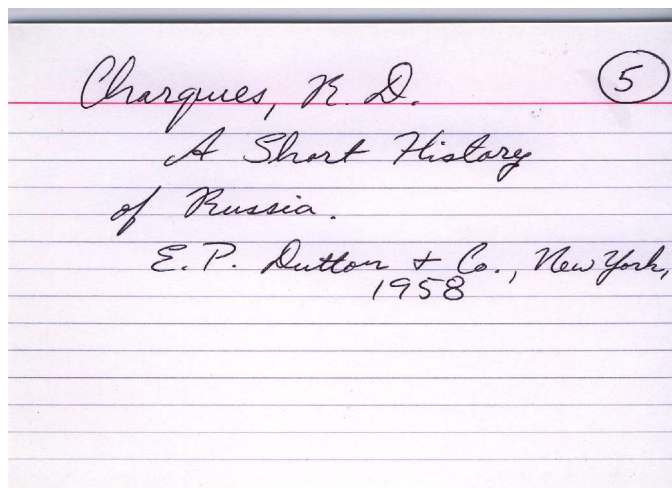 Charques, R. D. 5
A Short History
of Russia.
E. P. Dutton + Co., New York,
1958